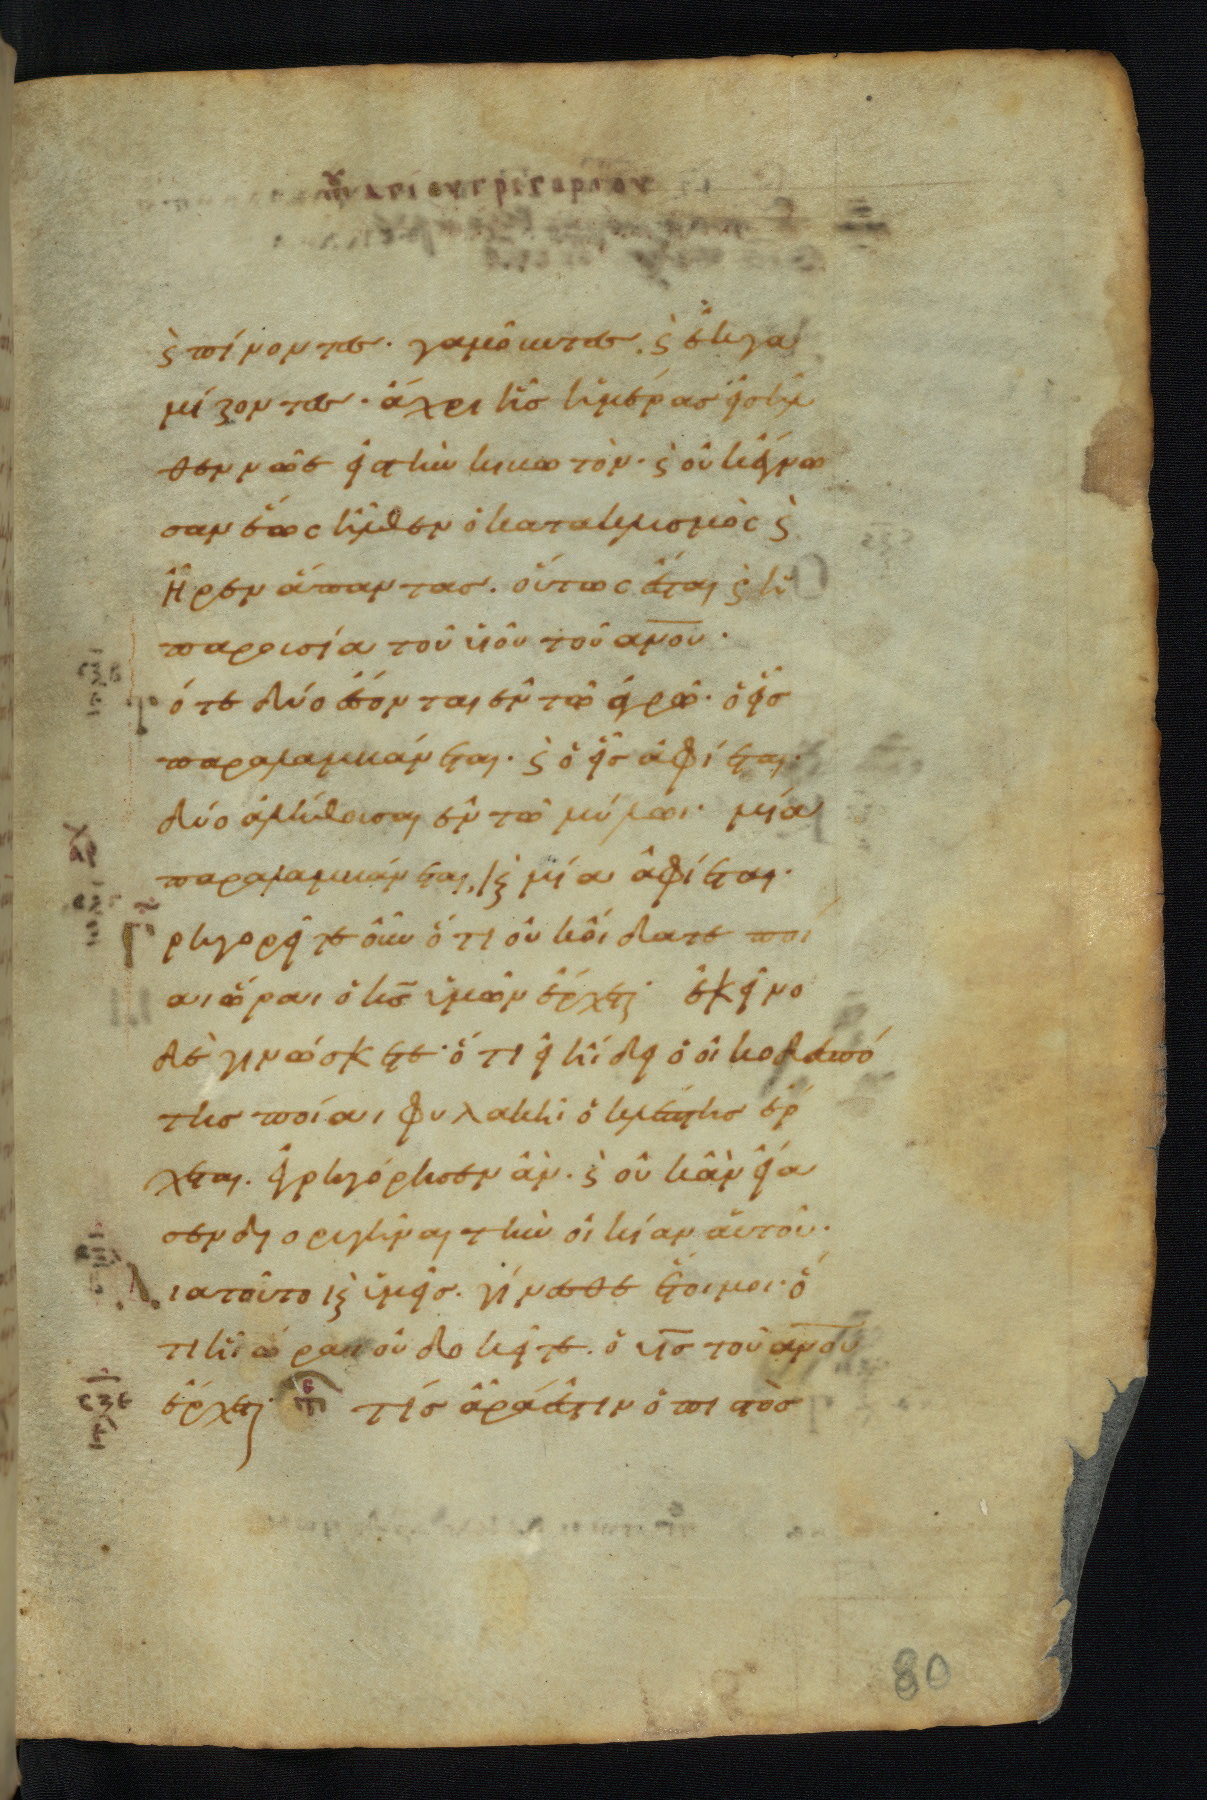 ϗ πίνοντες· γαμοῦντες, ϗ ἐκγα
μίζοντες· ἄχρι ἧς ἡμέρας εἰσῆλ
θεν νῶε εἰς τὴν κιβωτὸν· ϗ οὐκ ἔγνω
σαν ἕως ἦλθεν ὁ κατακλυσμὸς ϗ
ἦρεν ἅπαντας. οὕτως ἔσται ϗ ἡ
παρουσία τοῦ υἱοῦ τοῦ ανου·
ότε δύο ἔσονται ἐν τῶ ἀγρῶ· ὁ εἷς
παραλαμβάνεται· ϗ ὁ εἷς ἀφίεται·
δύο ἀλήθουσαι ἐν τῶ μύλωι· μία
παραλαμβάνεται, ϗ μία ἀφίεται·
Γρηγορεῖτε οὖν ὅτι οὐκ οἴδατε ποί
αι ὥραι ὁ κς ὑμῶν ἔρχεται· ἐκεῖνο
δὲ γινώσκετε· ὅτι εἰ ἤδει ὁ οἰκοδεσπό
της ποίαι φυλακῆ ὁ κλέπτης ἔρ
χεται. ἐγρηγόρησεν ἂν· ϗ οὐκ ἂν εἴα
σεν διορυγῆναι τὴν οἰκίαν αὐτοῦ·
Διατοῦτο ϗ ὑμεῖς· γίνεσθε ἕτοιμοι· ὅ
τι ἧ ὥραι οὐ δοκεῖτε. ὁ υς τοῦ ανου
ἔρχεται· τίς ἄρα ἐστιν ὁ πιστὸς
80